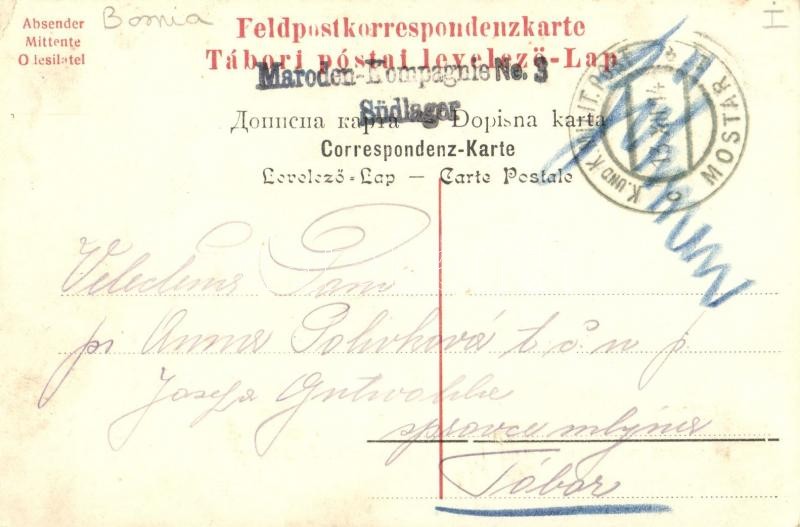 Absender
Mittente
Olesilatel
Bosnia
I
Feldpostkorrespondenzkarte
Tábori póstai levelező-Lap
Maroden-Kompagnie No. 3
Südlager
Дописна карта — Dopisna karta
Correspondenz-Karte
Levelező-Lap — Carte Postale
K. UND K. MILIT. POST
MOSTAR
13 XII 14
Velectěná Paní
pí Anna Polívková t. č. n p.
Josefa
správce mlýna
Tábor